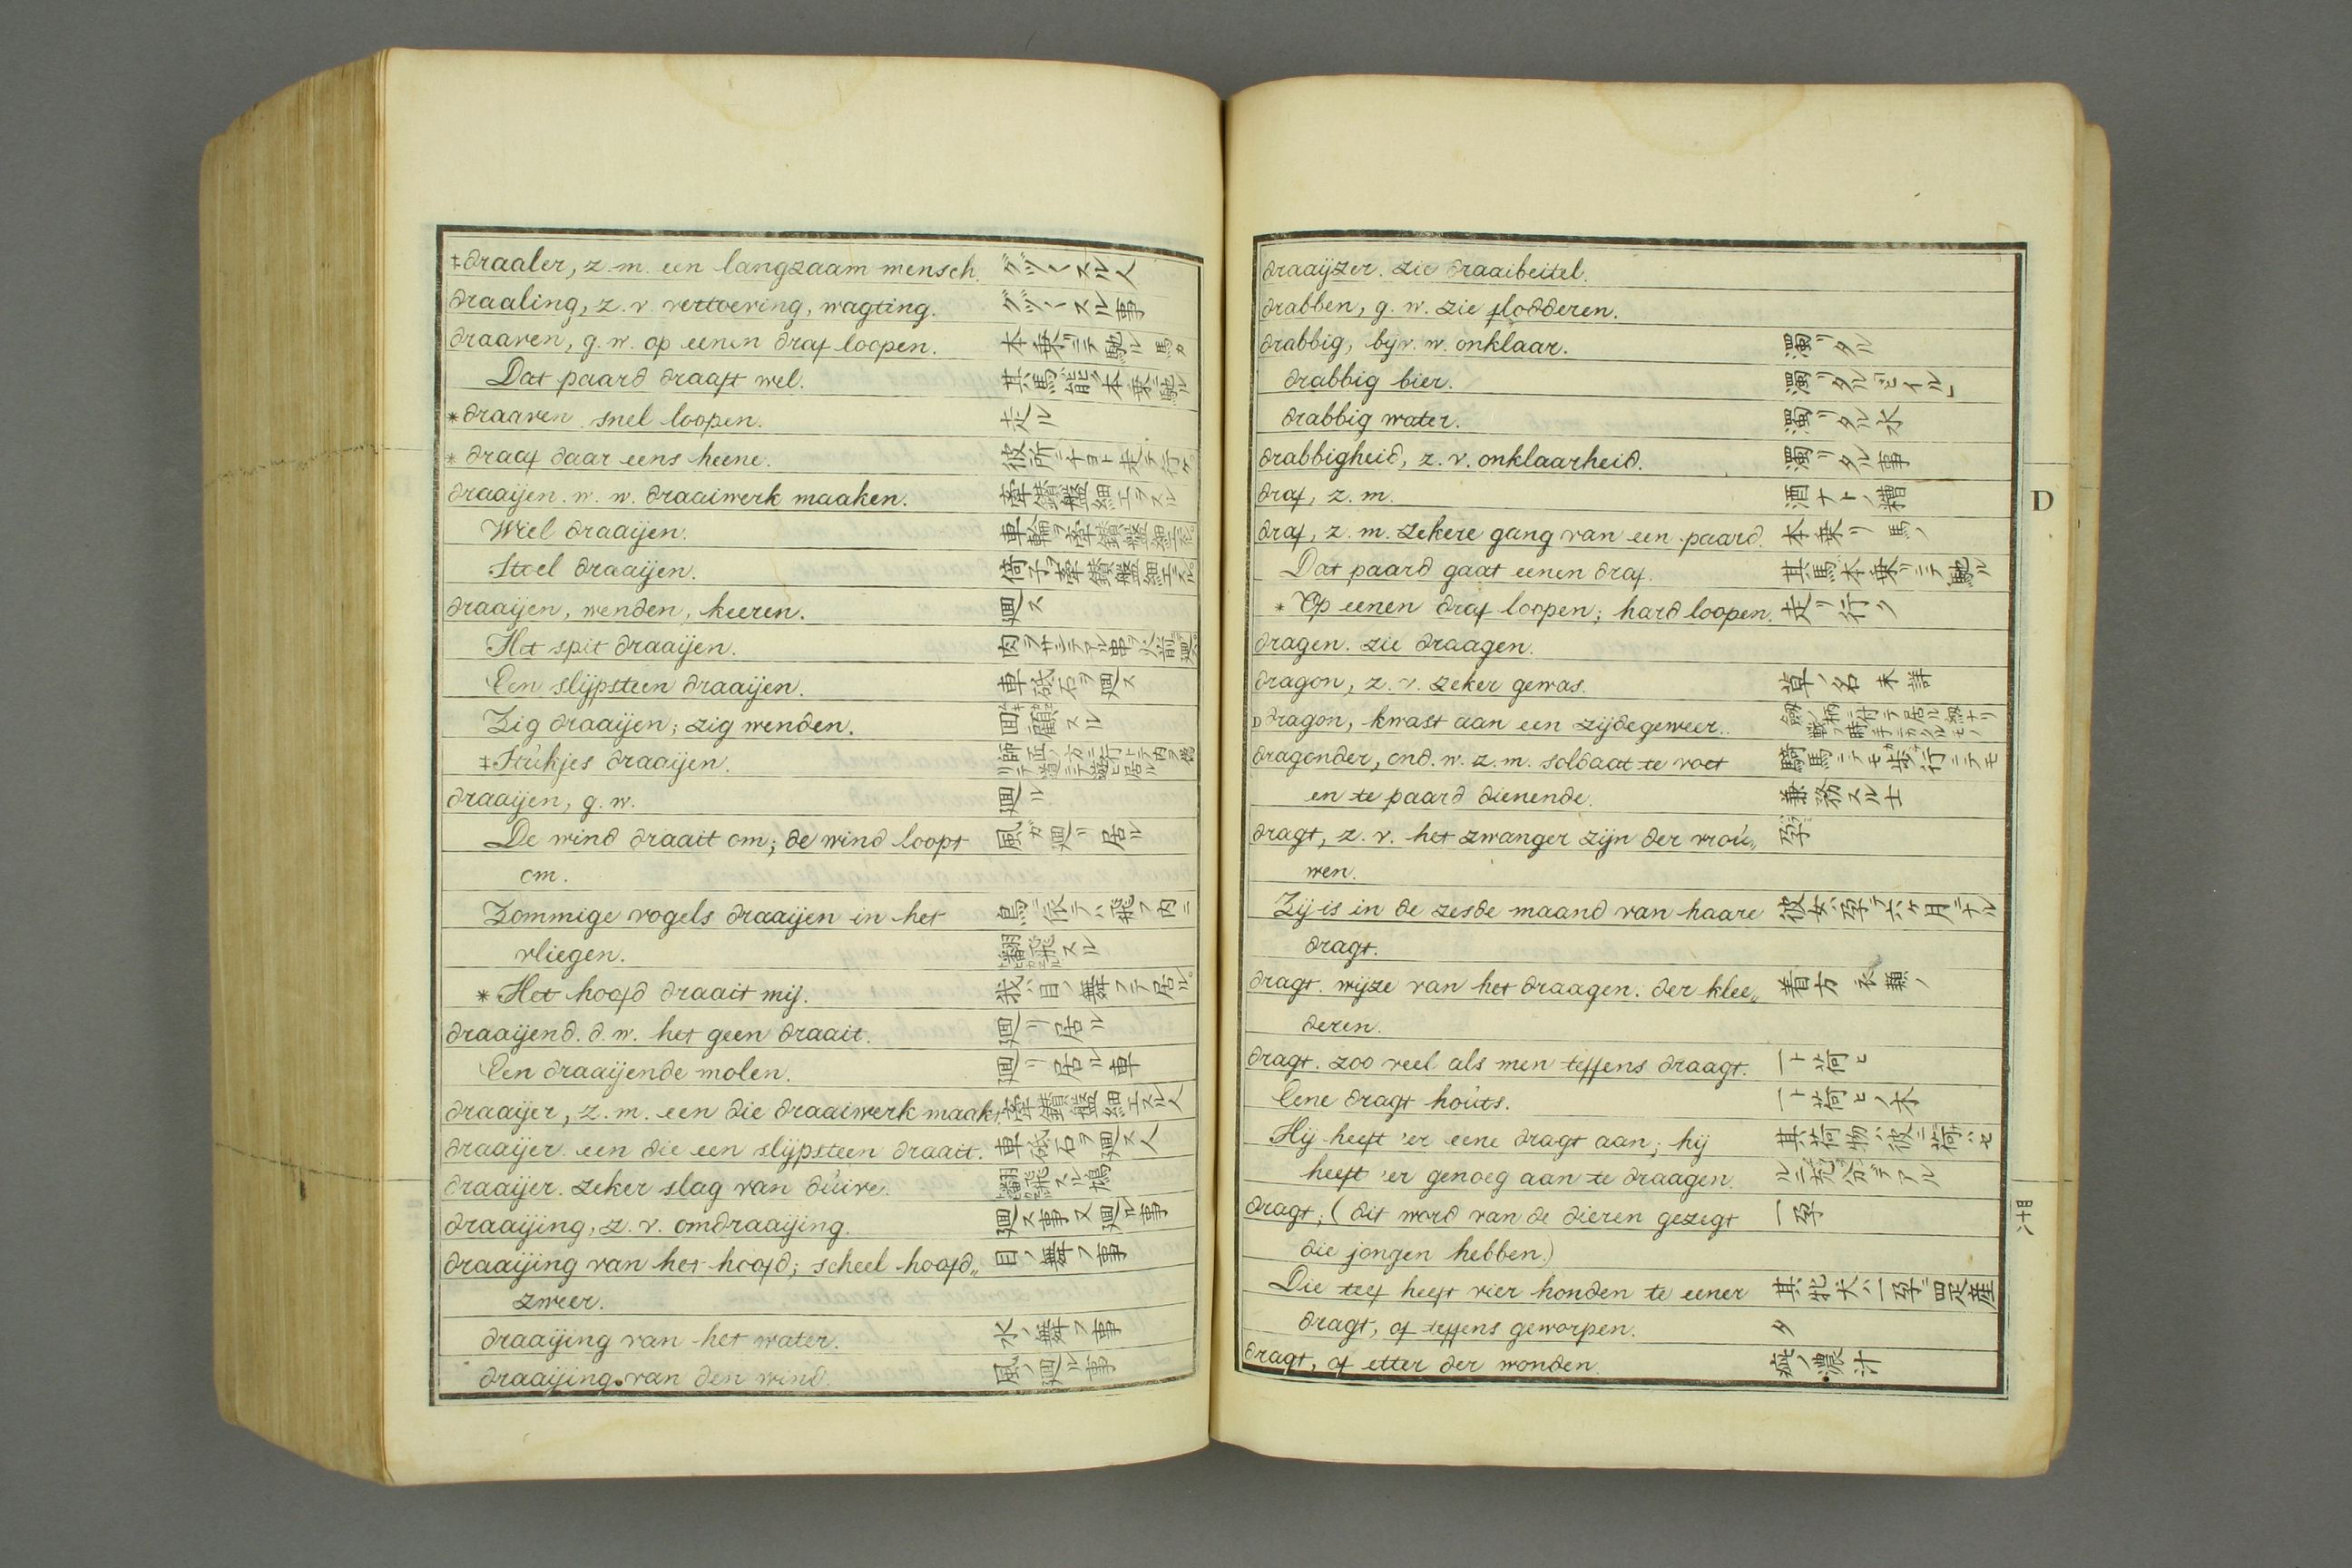 ‡draaler, z. m. een langzaam mensch. グツ〱スル人
draaling, z. v. vertoeving, wagting. グツ〱スル事
draaven, g. w. op eenen draf loopen. 本乗リニテ馳ル 馬ガ
Dat paard draaft wel. 其馬能ク本乗ニ馳ル
*draaven. snel loopen. 走ル
*draaf daar eens heene. 彼所ニチヨト走テ行ケ。
draaijen. w. w. draaiwerk maaken. 牽鑽盤細工ヲスル
Wiel draaijen. 車輪ヲ牽鑽盤細工ニスル。
Stoel draaijen. 倚子ヲ牽鑽盤細工ニスル。
draaijen, wenden, keeren. 廻ス
Het spit draaijen.
Een slijpsteen draaijen. 車砥石ヲ廻ス
Zig draaijen; zig wenden. 回顧スル
‡Stukjes draaijen.
draaijen, g. w. 廻ル
De wind draait om; de wind loopt 風ガ廻リ居ル
om.
Zommige vogels draaijen in het 鳥ニ依テハ飛フ内ニ
vliegen. 翻飛スル
*Het hoofd draait mij. 我ハ目ノ舞フテ居ル。
draaijend. d. w. het geen draait. 廻リ居ル
Een draaijende molen. 廻リ居ル車
draaijer, z. m. een die draaiwerk maakt. 牽鑽盤細工スル人
draaijer. een die een slijpsteen draait. 車砥石ヲ廻ス人
draaijer. zeker slag van duive. 翻飛スル鳩
draaijing, z. v. omdraaijing. 廻ス事又廻ル事
draaijing van het hoofd; scheel hoofd„ 目ノ舞フ事
zweer.
draaijing van het water. 水ノ舞フ事
draaijing van den wind. 風ノ廻ル事
draaijzer. zie draaibeitel.
drabben, g. w. zie flodderen.
drabbig, bijv. w. onklaar. 濁リタル
drabbig bier. 濁リタル「ビイル」
drabbig water. 濁リタル水
drabbigheid, z. v. onklaarheid. 濁リタル事
draf, z. m. 酒ナトノ糟
draf, z. m. zekere gang van een paard. 本乗リ 馬ノ
Dat paard gaat eenen draf. 其馬本乗リニテ馳ル
*Op eenen draf loopen; hard loopen. 走リ行ク
dragen. zie draagen.
dragon, z. v. zeker gewas. 草ノ名 未詳
dragon, kwast aan een zijdegeweer.
dragonder, ond. w. z. m. soldaat te voet 騎馬ニテモ歩行ニテモ
en te paard dienende. 兼務スル士
dragt, z. v. het zwanger zijn der vrou„ 孕
wen.
Zij is in de zesde maand van haare 彼女ハ孕テ六ケ月ニナル
dragt.
dragt. wijze van het draagen. der klee„ 着方 衣類ノ
deren.
dragt. zoo veel als men teffens draagt. 一ト荷ヒ
Eene dragt houts. 一ト荷ヒノ木
Hij heeft 'er eene dragt aan; hij 其荷物ハ彼ニ荷ハセ
heeft 'er genoeg aan te draagen. ルニ充分デアル
dragt; (dit word van de dieren gezegt 一孕
die jongen hebben.)
Die teef heeft vier honden te eener 其牝犬ハ一孕ニ四疋産
dragt, of teffens geworpen. タ
dragt, of etter der wonden. 疵ノ濃汁
D